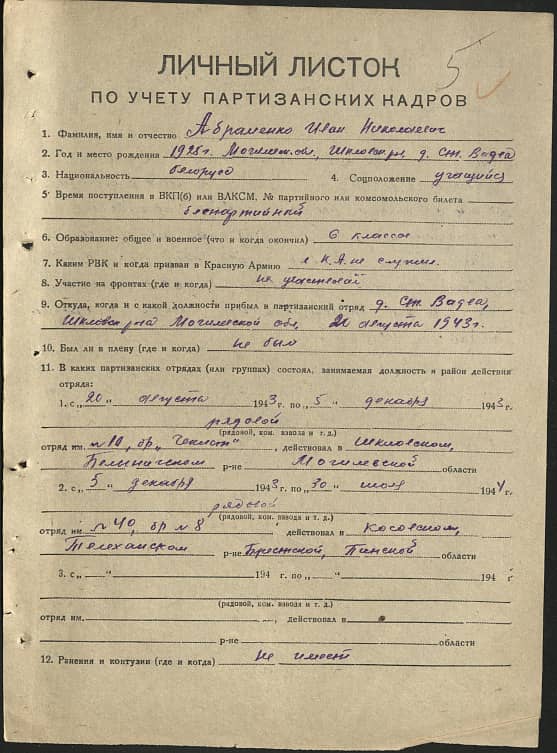 5
ЛИЧНЫЙ ЛИСТОК
ПО УЧЕТУ ПАРТИЗАНСКИХ КАДРОВ
1. Фамилия, имя и отчество Абраменко Иван Николаевич
2. Год и место рождения 1925г. Могилев. обл., Шкловск. р-н, д. Ст. Водва
3. Национальность белорус 4. Соцположение учащийся
5. Время поступления в ВКП(б) или ВЛКСМ, № партийного или комсомольского билета
беспартийный
6. Образование: общее и военное (что и когда окончил) 6 классов
7. Каким РВК и когда призван в Красную Армию в К.А. не служил.
8. Участие на фронтах (где и когда) не участвовал
9. Откуда, когда и с какой должности прибыл в партизанский отряд д. Ст. Водва,
Шкловск. р-на Могилевской обл. 20 августа 1943г.
10. Был ли в плену (где и когда) не был
11. В каких партизанских отрядах (или группах) состоял, занимаемая должность и район действия
отряда:
1. с „20“ августа 1943 г. по „5“ декабря 1943 г.
рядовой
(рядовой, ком. взвода и т. д.)
отряд им. №10, бр. „Чекист“, действовал в Шкловском,
Белыничском р-не Могилевской области
2. с „5“ декабря 1943 г. по „30“ июля 1944 г.
рядовой
(рядовой, ком. взвода и т. д.)
отряд им. №40, бр №8 действовал в Косовском,
Телеханском р-не Брестской, Пинской области
3. с „ “ 194 г. по „ “ 194 г.
(рядовой, ком. взвода и т. д.)
отряд им. , действовал в
р-не области
12. Ранения и контузии (где и когда) не имеет